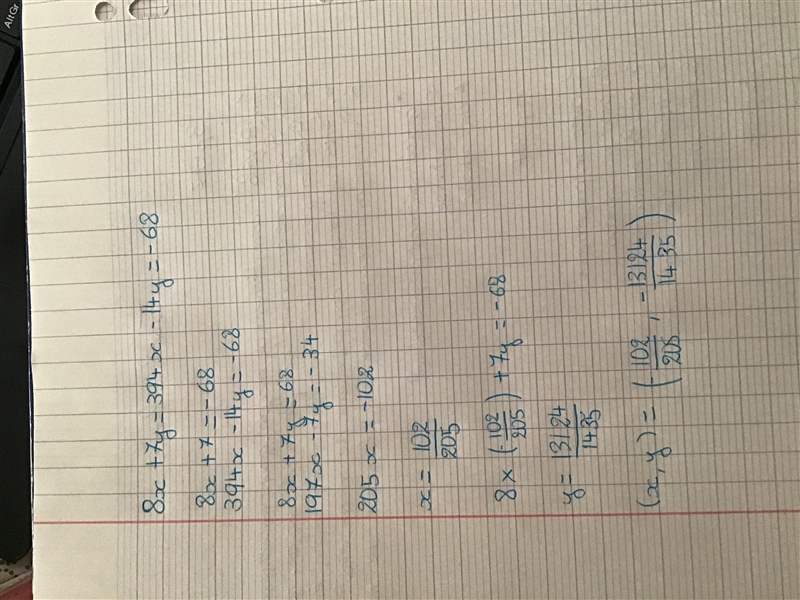 8x + 7y = 394x - 14y = -68
8x + 7 = -68
394x - 14y = -68
8x + 7y = 68
197x - 7y = -34
205x = -102
x = 102/205
8 × (-102/205) + 7y = -68
y = 13124/1435
(x, y) = (-102/205, -13124/1435)
AltGr